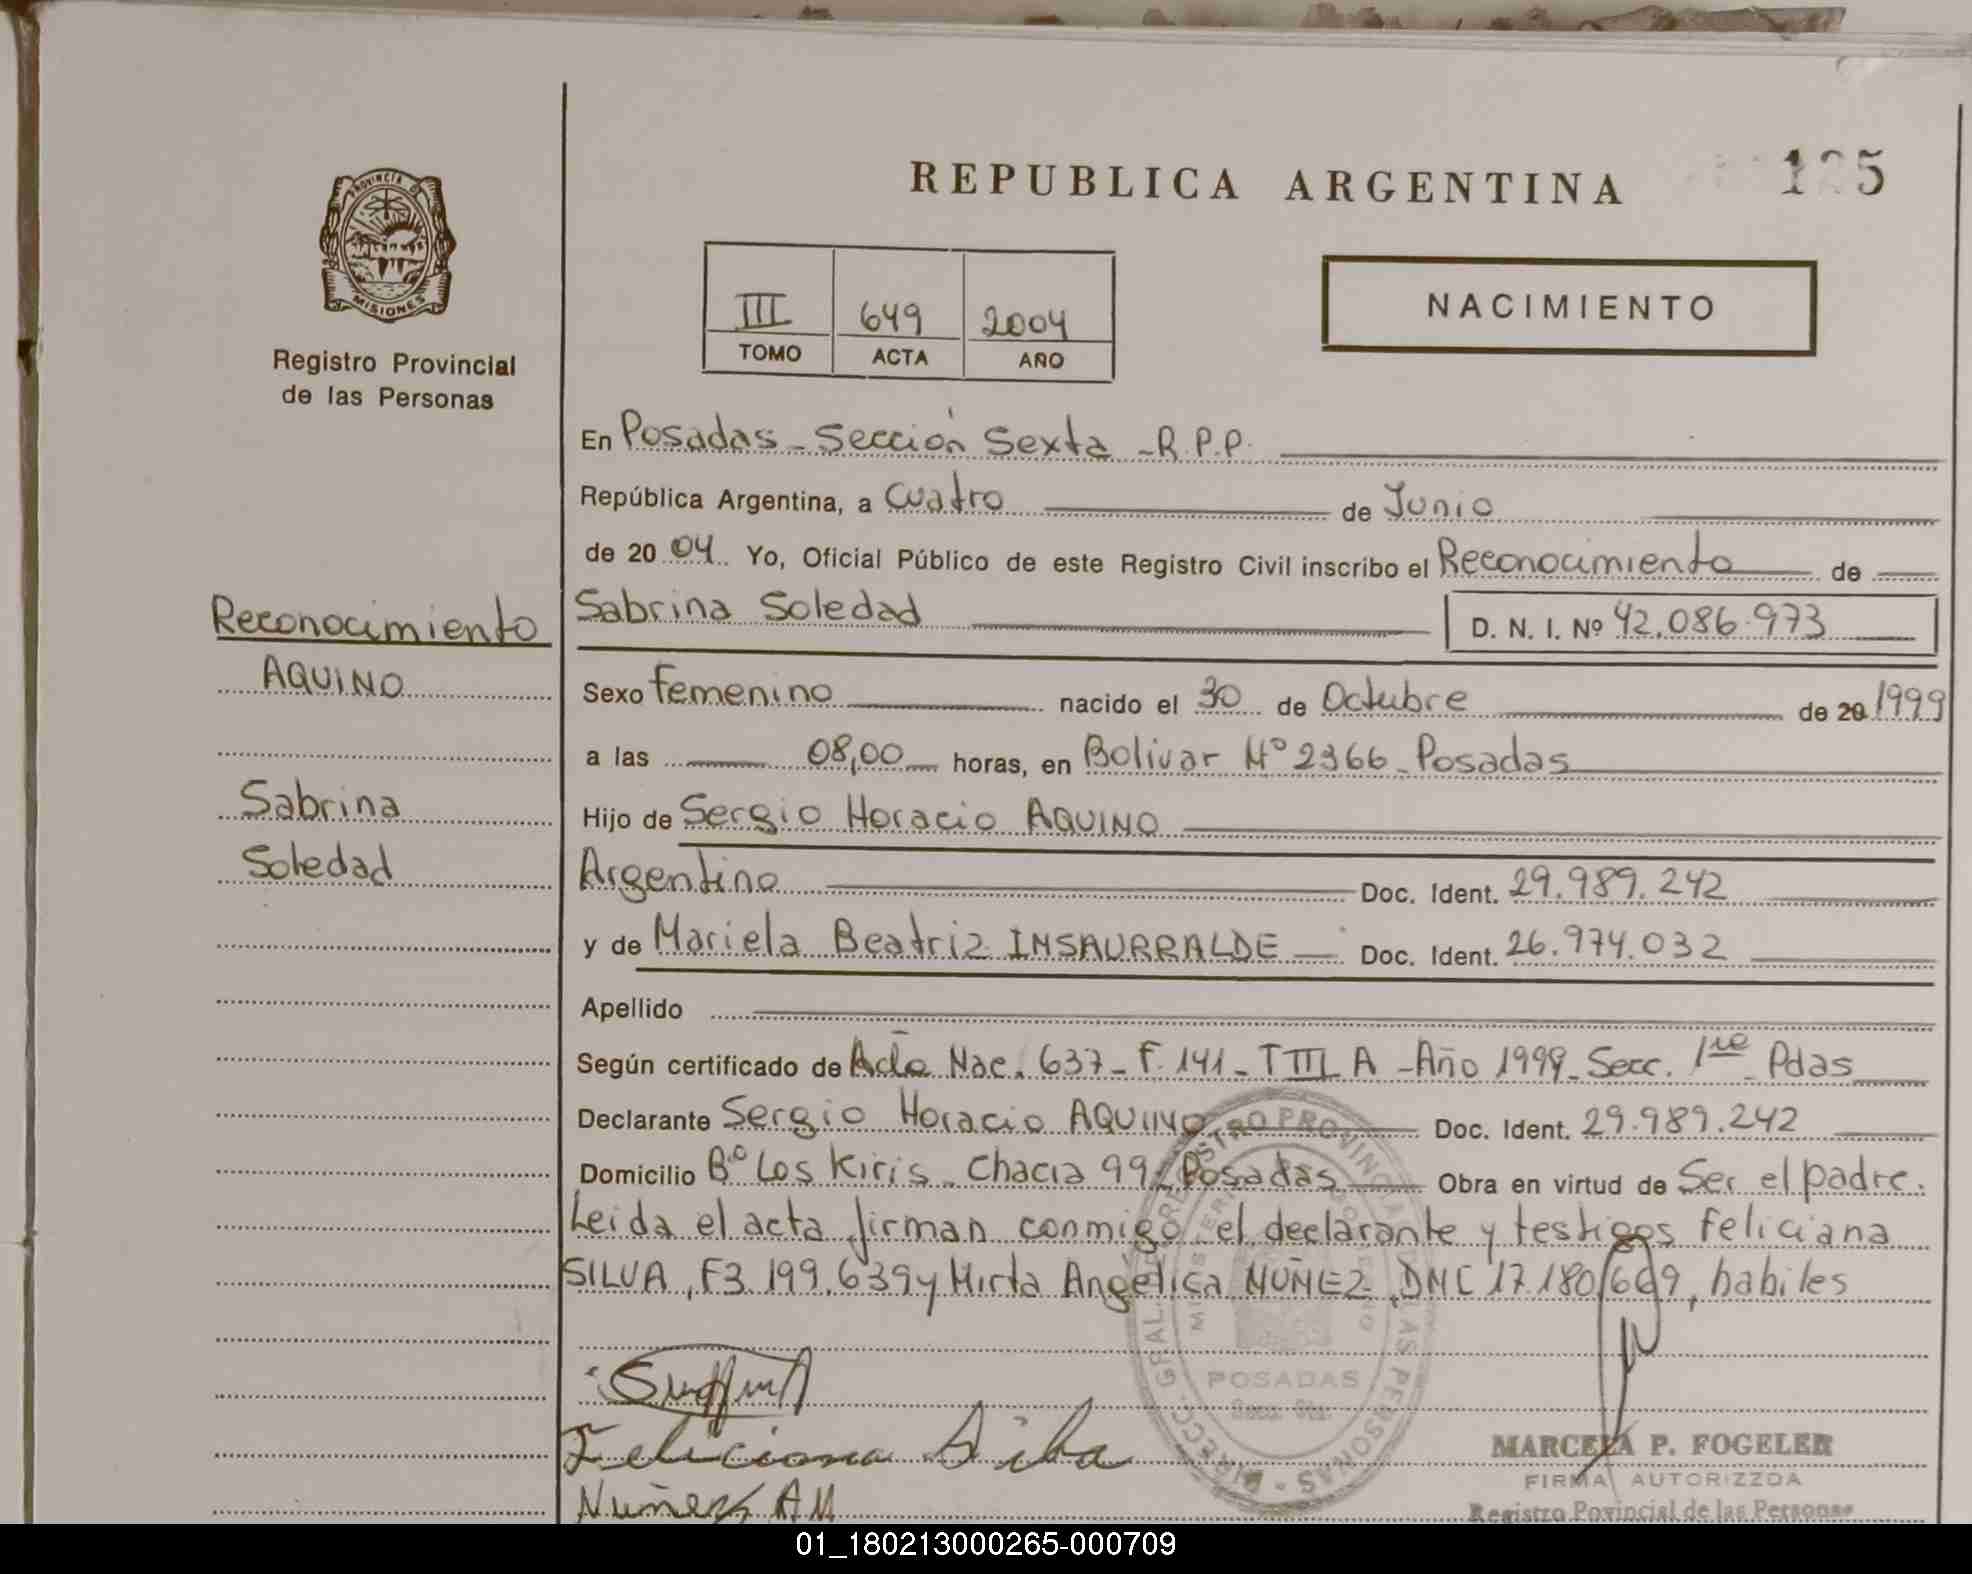 REPUBLICA ARGENTINA
PROVINCIA D
MISIONES
Registro Provincial
de las Personas
III 649 2004
TOMO ACTA AÑO
NACIMIENTO
En Posadas - Sección Sexta - R.P.P.
República Argentina, a Cuatro de Junio
de 2004 Yo, Oficial Público de este Registro Civil inscribo el Reconocimiento de
Reconocimiento
Sabrina Soledad D. N. I. Nº 42.086.973
AQUINO
Sexo femenino nacido el 30 de Octubre de 20 1999
a las 08,00 horas, en Bolivar Nº 2366 - Posadas
Sabrina
Hijo de Sergio Horacio AQUINO
Soledad
Argentino Doc. Ident. 29.989.242
y de Mariela Beatriz INSAURRALDE Doc. Ident. 26.974.032
Apellido
Según certificado de Acta Nac. 637 - F. 141 - T III A - Año 1999 - Secc. 1ra Pdas
Declarante Sergio Horacio AQUINO Doc. Ident. 29.989.242
Domicilio Bº Los Kiris - Chacra 99 - Posadas Obra en virtud de Ser el padre.
Leida el acta firman conmigo el declarante y testigos Feliciana
SILVA, F3.199.639 y Mirta Angelica NUÑEZ, DNC 17.180.669, habiles
POSADAS
Feliciana Silva
Nuñez A M
MARCELA P. FOGELER
FIRMA AUTORIZZDA
Registro Povincial de las Personas
01_180213000265-000709